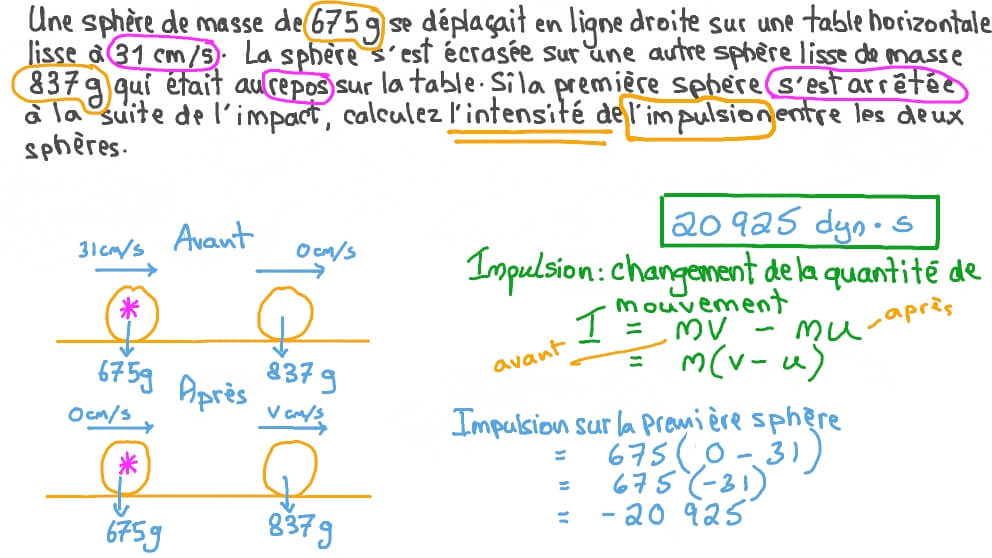 Une sphère de masse de 675 g se déplaçait en ligne droite sur une table horizontale
lisse à 31 cm/s. La sphère s'est écrasée sur une autre sphère lisse de masse
837 g qui était au repos sur la table. Si la première sphère s'est arrêtée
à la suite de l'impact, calculez l'intensité de l'impulsion entre les deux
sphères.
20 925 dyn · s
31 cm/s Avant 0 cm/s
*
675g 837 g
Après
0 cm/s V cm/s
*
675g 837 g
Impulsion : changement de la quantité de
mouvement
I = mv - mu après
avant = m(v - u)
Impulsion sur la première sphère
= 675(0 - 31)
= 675(-31)
= -20 925